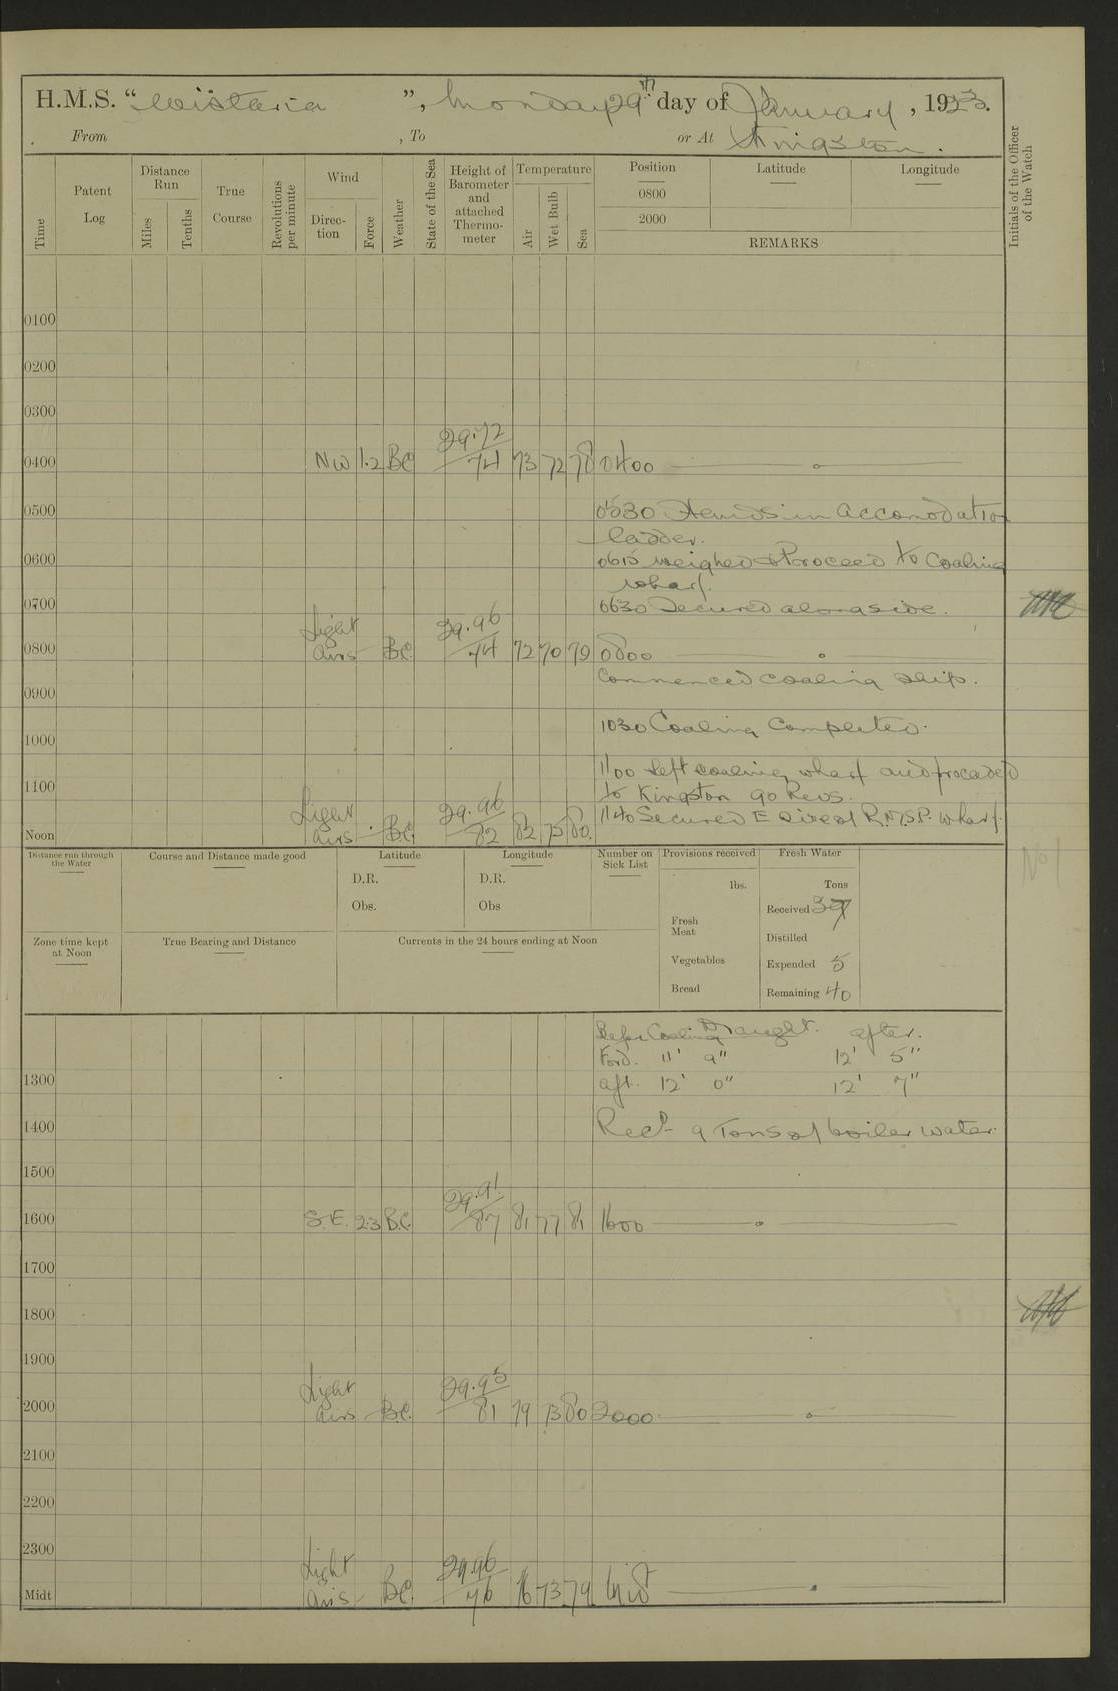 H.M.S. “Wistaria”, Monday 29th day of January, 1923.
From , To or At Kingston.
Time
Patent Log
Distance Run
Miles
Tenths
True Course
Revolutions per minute
Wind
Direction
Force
Weather
State of the Sea
Height of Barometer and attached Thermometer
Temperature
Air
Wet Bulb
Sea
Position Latitude Longitude
0800
2000
REMARKS
Initials of the Officer of the Watch
0100
0200
0300
29.72
0400 NW 1.2 BC 74 73 72 78 0400
0500 0530 in accomodation
ladder.
0600 0615 weighed & Proceed to Coaling
wharf.
0700 0630 Secured alongside.
Light 29.96
0800 airs BC. 74 72 70 79 0800
0900 Commenced coaling ship.
1000 1030 Coaling Completed.
1100 1100 Left coaling wharf and proceeded
to Kingston 90 Revs.
Light 29.96
Noon airs BC. 82 82 75 80. 1140 Secured E side of R.M.S.P. wharf.
Distance run through the Water
Course and Distance made good
Latitude
Longitude
Number on Sick List
Provisions received
Fresh Water
D.R. D.R. lbs. Tons
Obs. Obs Received 37
Fresh Meat
Distilled
Zone time kept at Noon
True Bearing and Distance
Currents in the 24 hours ending at Noon
Vegetables Expended 5
Bread Remaining 40
No 1
Before Coaling Draught. after.
Ford. 11' 9" 12' 5"
1300 aft. 12' 0" 12' 7"
1400 Recd 9 Tons of boiler water.
1500
29.91
1600 S.E. 2.3 B.C. 87 81 77 81 1600
1700
1800
1900
Light 29.95
2000 airs B.C. 81 79 73 80 2000
2100
2200
2300
Light 29.96
Midt airs BC. 76 76 73 79 Mid